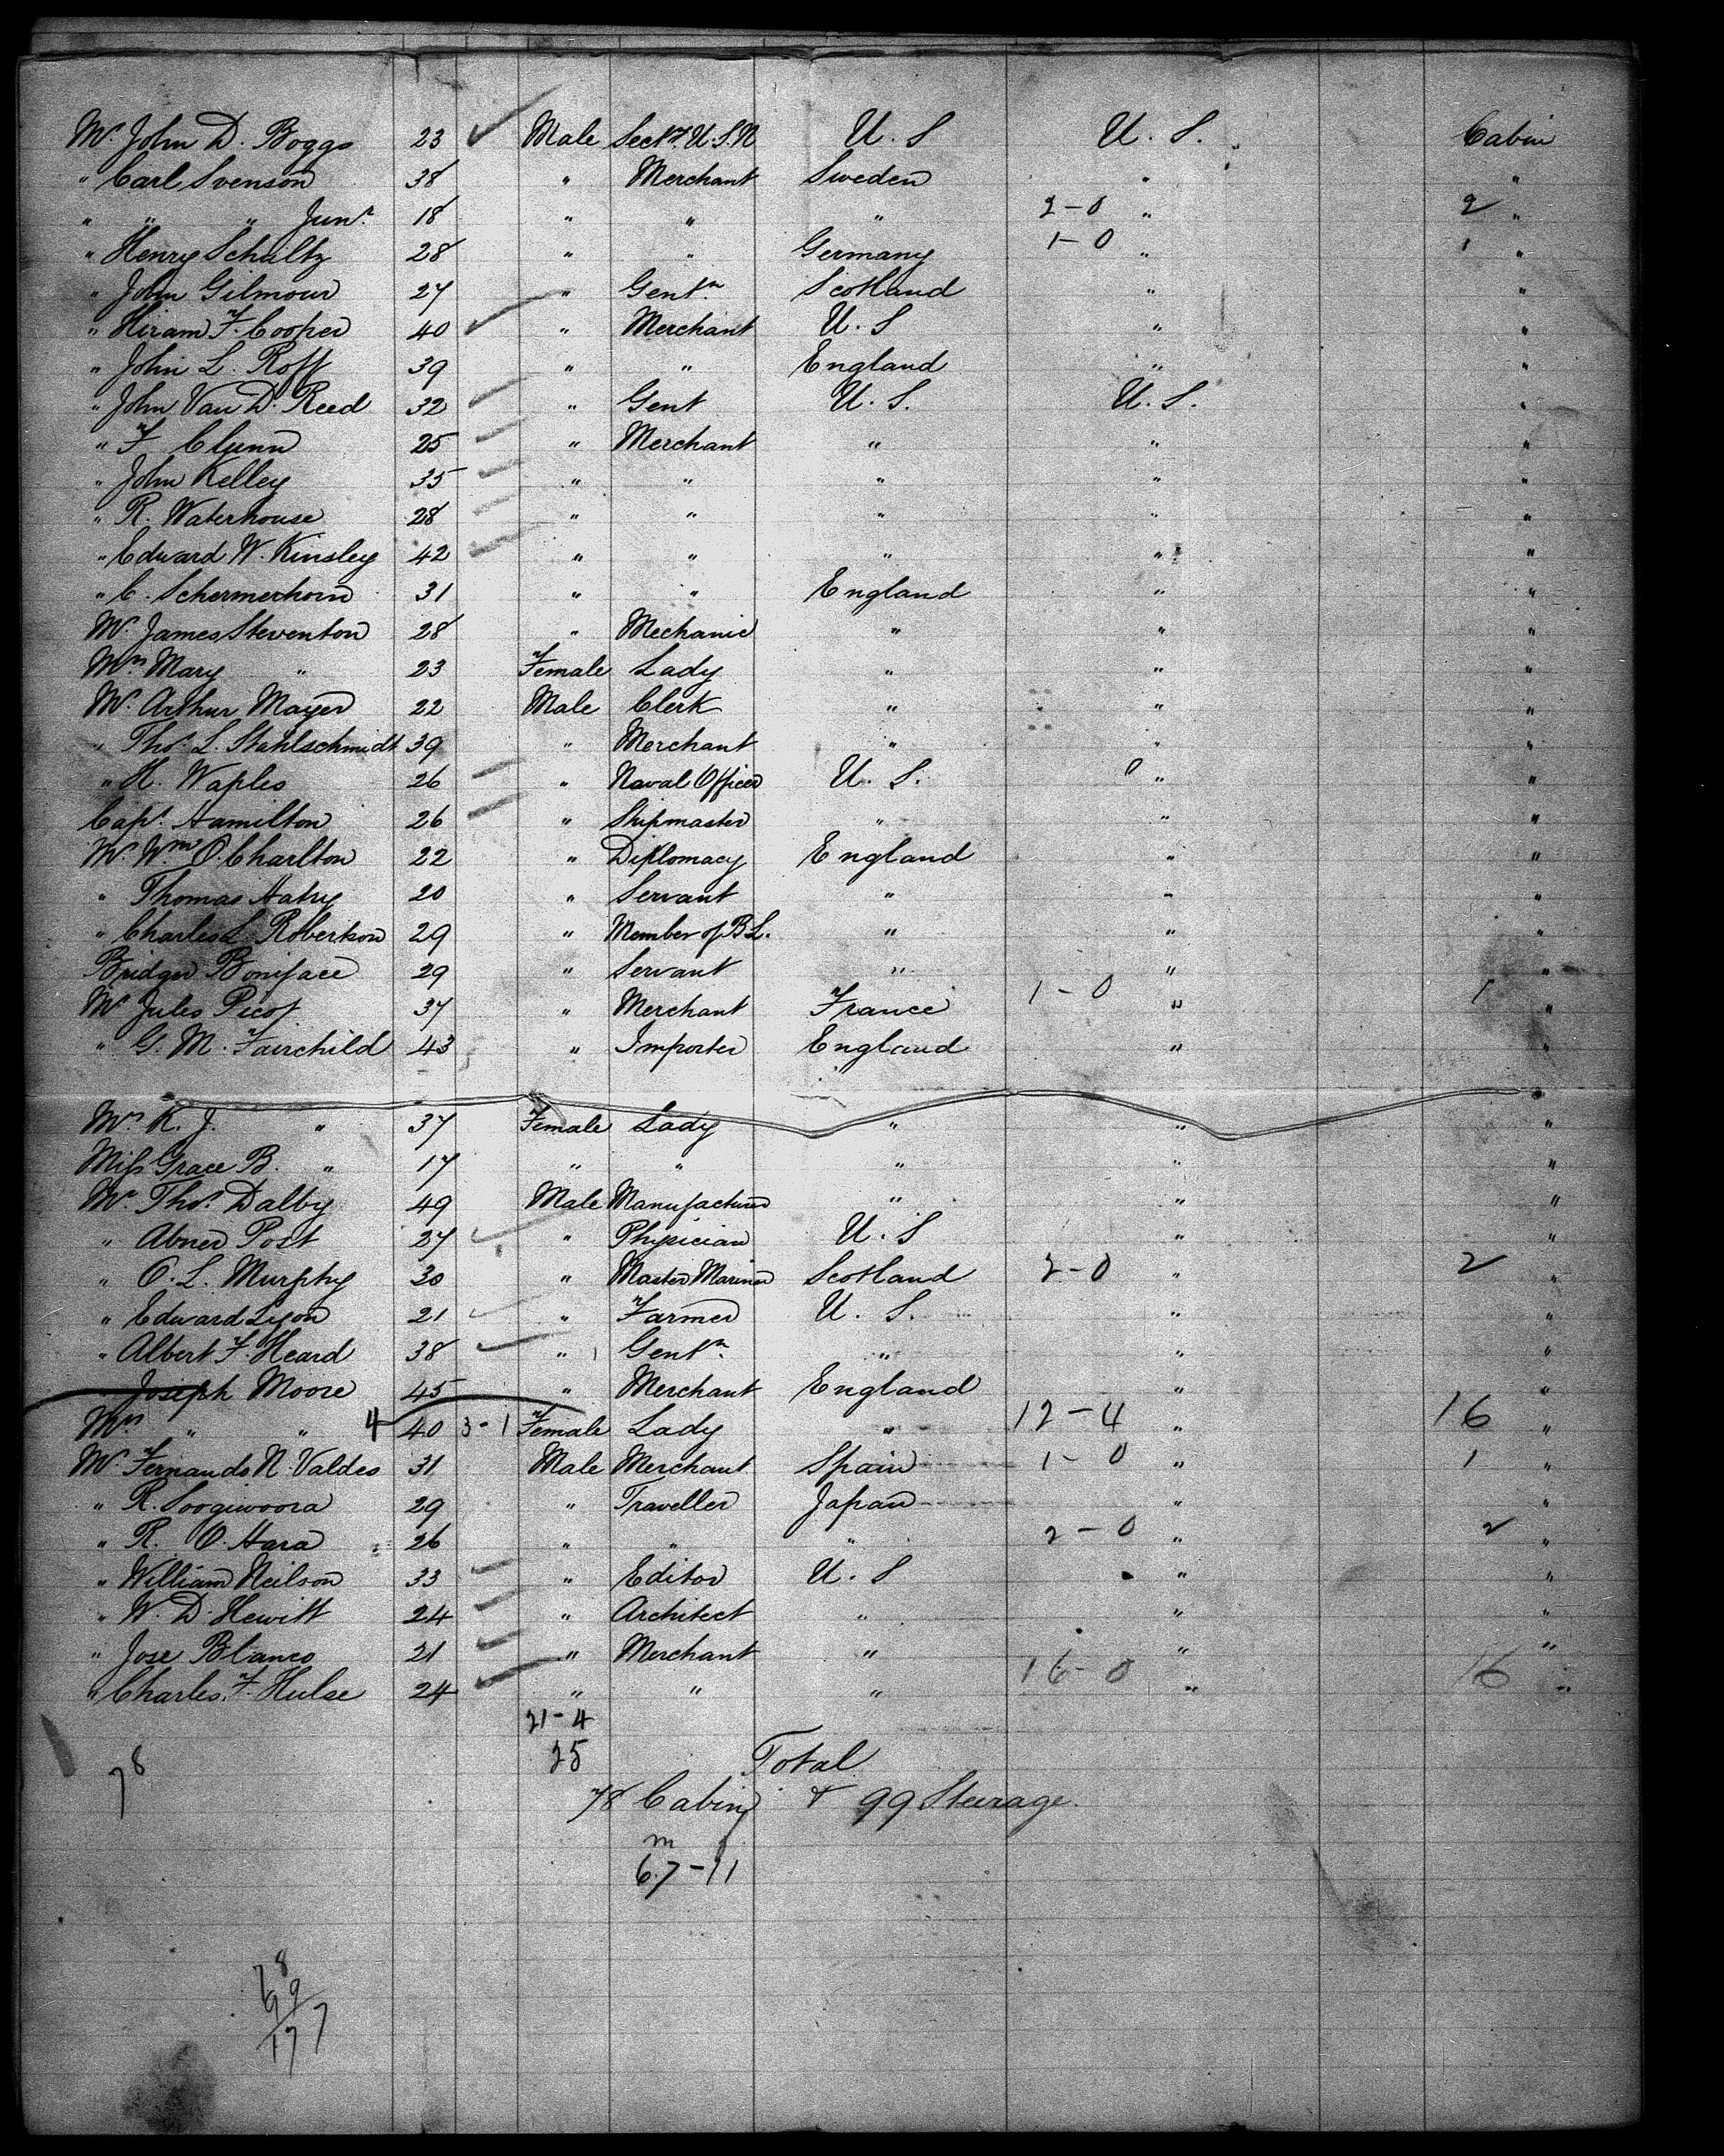 Mr. John D. Boggs 23 Male Secty. U.S.N U.S U.S. Cabin
" Carl Svenson 38 " Merchant Sweden " "
" " " Junr. 18 " " " 2-0 " 2 "
" Henry Schultz 28 " " Germany 1-0 " 1 "
" John Gilmour 27 " Gentn. Scotland " "
" Hiram F. Cooper 40 " Merchant U.S " "
" John L. Roff 39 " " England " "
" John Van D. Reed 32 " Gent U.S. U.S. "
" F Clynn 25 " Merchant " " "
" John Kelley 35 " " " " "
" R. Waterhouse 28 " " " " "
" Edward W. Kinsley 42 " " " " "
" C. Schermerhorn 31 " " England " "
Mr. James Steventon 28 " Mechanic " " "
Mrs Mary " 23 Female Lady " " "
Mr. Arthur Mayer 22 Male Clerk " " "
" Thos. L. Stahlschmidt 39 " Merchant " " "
" H. Waples 26 " Naval Officer U.S. " "
Capt. Hamilton 26 " Shipmaster " " "
Mr. Wm O. Charlton 22 " Diplomacy England " "
" Thomas Hatry 20 " Servant " " "
" Charles L. Robertson 29 " Member of B L. " " "
Bridger Boniface 29 " Servant " " "
Mr Jules Picot 37 " Merchant France 1-0 " 1 "
" G. M. Fairchild 43 " Importer England " "
Mrs K. J. " 37 Female Lady " " "
Miss Grace B. " 17 " " " " "
Mr. Thos. Dalby 49 Male Manufacturer " " "
" Abner Post 27 " Physician U.S " "
" O. L. Murphy 30 " Master Mariner Scotland 2-0 " 2 "
" Edward Lyon 21 " Farmer U.S. " "
" Albert F. Heard 38 " Gentn. " " "
" Joseph Moore 45 " Merchant England " "
Mrs " " 4 40 3-1 Female Lady " 12-4 " 16 "
Mr Fernando N. Valdes 31 Male Merchant Spain 1-0 " 1 "
" R. Soogiwoora 29 " Traveller Japan " "
" R. O. Hara 26 " " " 2-0 " 2 "
" William Neilson 33 " Editor U.S " "
" W. D. Hewitt 24 " Architect " " "
" Jose Blanco 21 " Merchant " " "
" Charles. F. Hulse 24 " " " 16-0 " 16 "
21-4
25 Total
78
78 Cabin & 99 Steerage.
m f
67-11
78
99
177